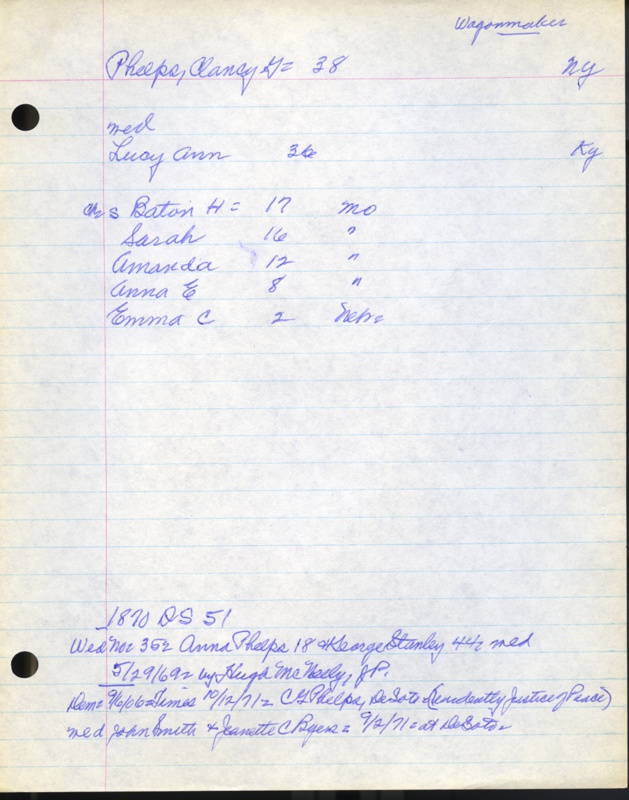 Wagonmaker
Phelps, Clancy G= 38 NY
med
Lucy Ann 36 Ky
chs Baton H= 17 Mo
Sarah 16 "
Amanda 12 "
Anna E 8 "
Emma C 2 Neb=
1870 DS 51
Wed Noc 352 Anna Phelps 18 & George Stanley 44= med
5/29/69= by Hugh McNeely, J.P.
Dem= 9/6/06=Times 10/12/71= C G Phelps, DeSoto (evidently Justice of Peace)
med John Smith & Jeanette C Byers= 9/2/71= at DeSoto=